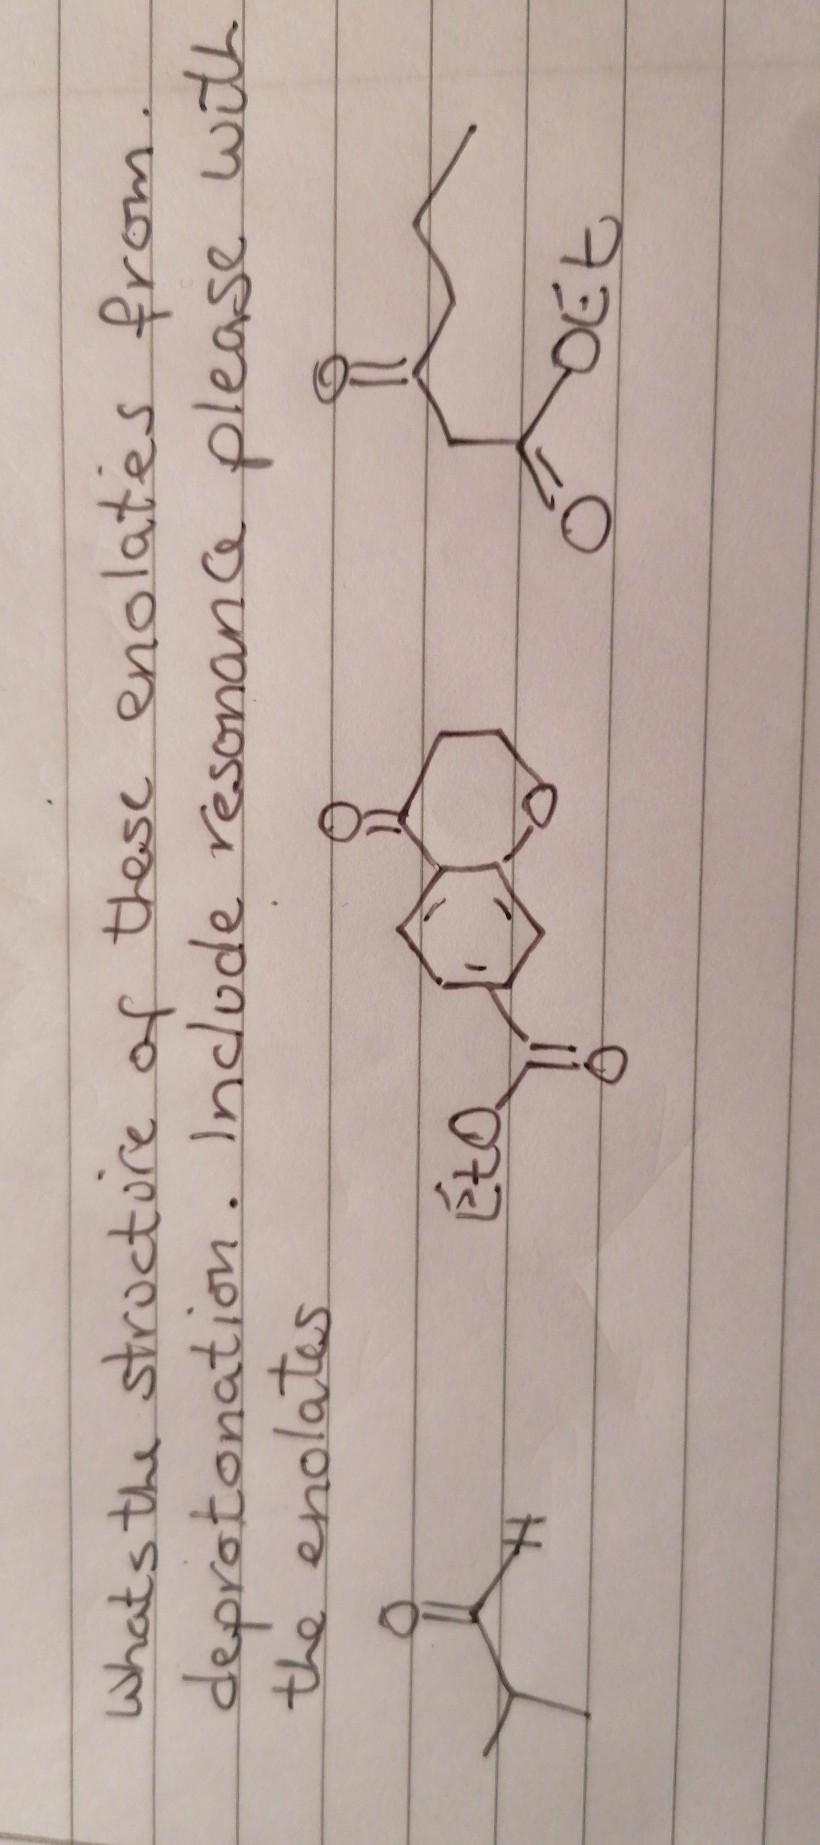 Whats the structure of these enolates from.
deprotonation. Include resonance please with
the enolates
O
H
EtO
O
O
O
O
O
OEt